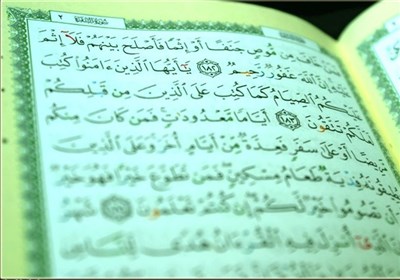 ٢ سُورَةُ البَقَرَةِ
خَافَ مِن مُّوصٍ جَنَفًا أَوْ إِثْمًا فَأَصْلَحَ بَيْنَهُمْ فَلَآ إِثْمَ
إِنَّ ٱللَّهَ غَفُورٌ رَّحِيمٌ ١٨٢ يَٰٓأَيُّهَا ٱلَّذِينَ ءَامَنُوا۟ كُتِبَ
عَلَيْكُمُ ٱلصِّيَامُ كَمَا كُتِبَ عَلَى ٱلَّذِينَ مِن قَبْلِكُمْ
لَعَلَّكُمْ تَتَّقُونَ ١٨٣ أَيَّامًا مَّعْدُودَٰتٍ فَمَن كَانَ مِنكُم
مَّرِيضًا أَوْ عَلَىٰ سَفَرٍ فَعِدَّةٌ مِّنْ أَيَّامٍ أُخَرَ وَعَلَى ٱلَّذِينَ
يُطِيقُونَهُۥ فِدْيَةٌ طَعَامُ مِسْكِينٍ فَمَن تَطَوَّعَ خَيْرًا فَهُوَ خَيْرٌ
وَأَن تَصُومُوا۟ خَيْرٌ لَّكُمْ إِن كُنتُمْ تَعْلَمُونَ ١٨٤ شَهْرُ
ٱلَّذِىٓ أُنزِلَ فِيهِ ٱلْقُرْءَانُ هُدًى لِّلنَّاسِ